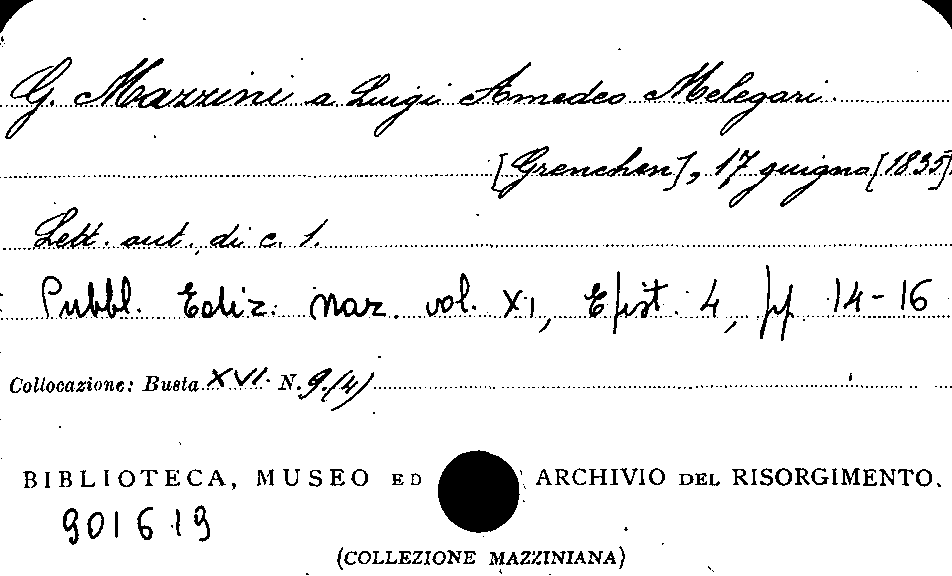 G. Mazzini a Luigi Amedeo Melegari.
[Grenchen], 17 giugno [1835].
Lett. aut. di c. 1.
Pubbl. Ediz. Naz. vol. XI, Epist. 4, pp. 14-16
Collocazione: Busta XVI. N. 9.(4)
BIBLIOTECA, MUSEO ED ARCHIVIO DEL RISORGIMENTO.
901619
(COLLEZIONE MAZZINIANA)